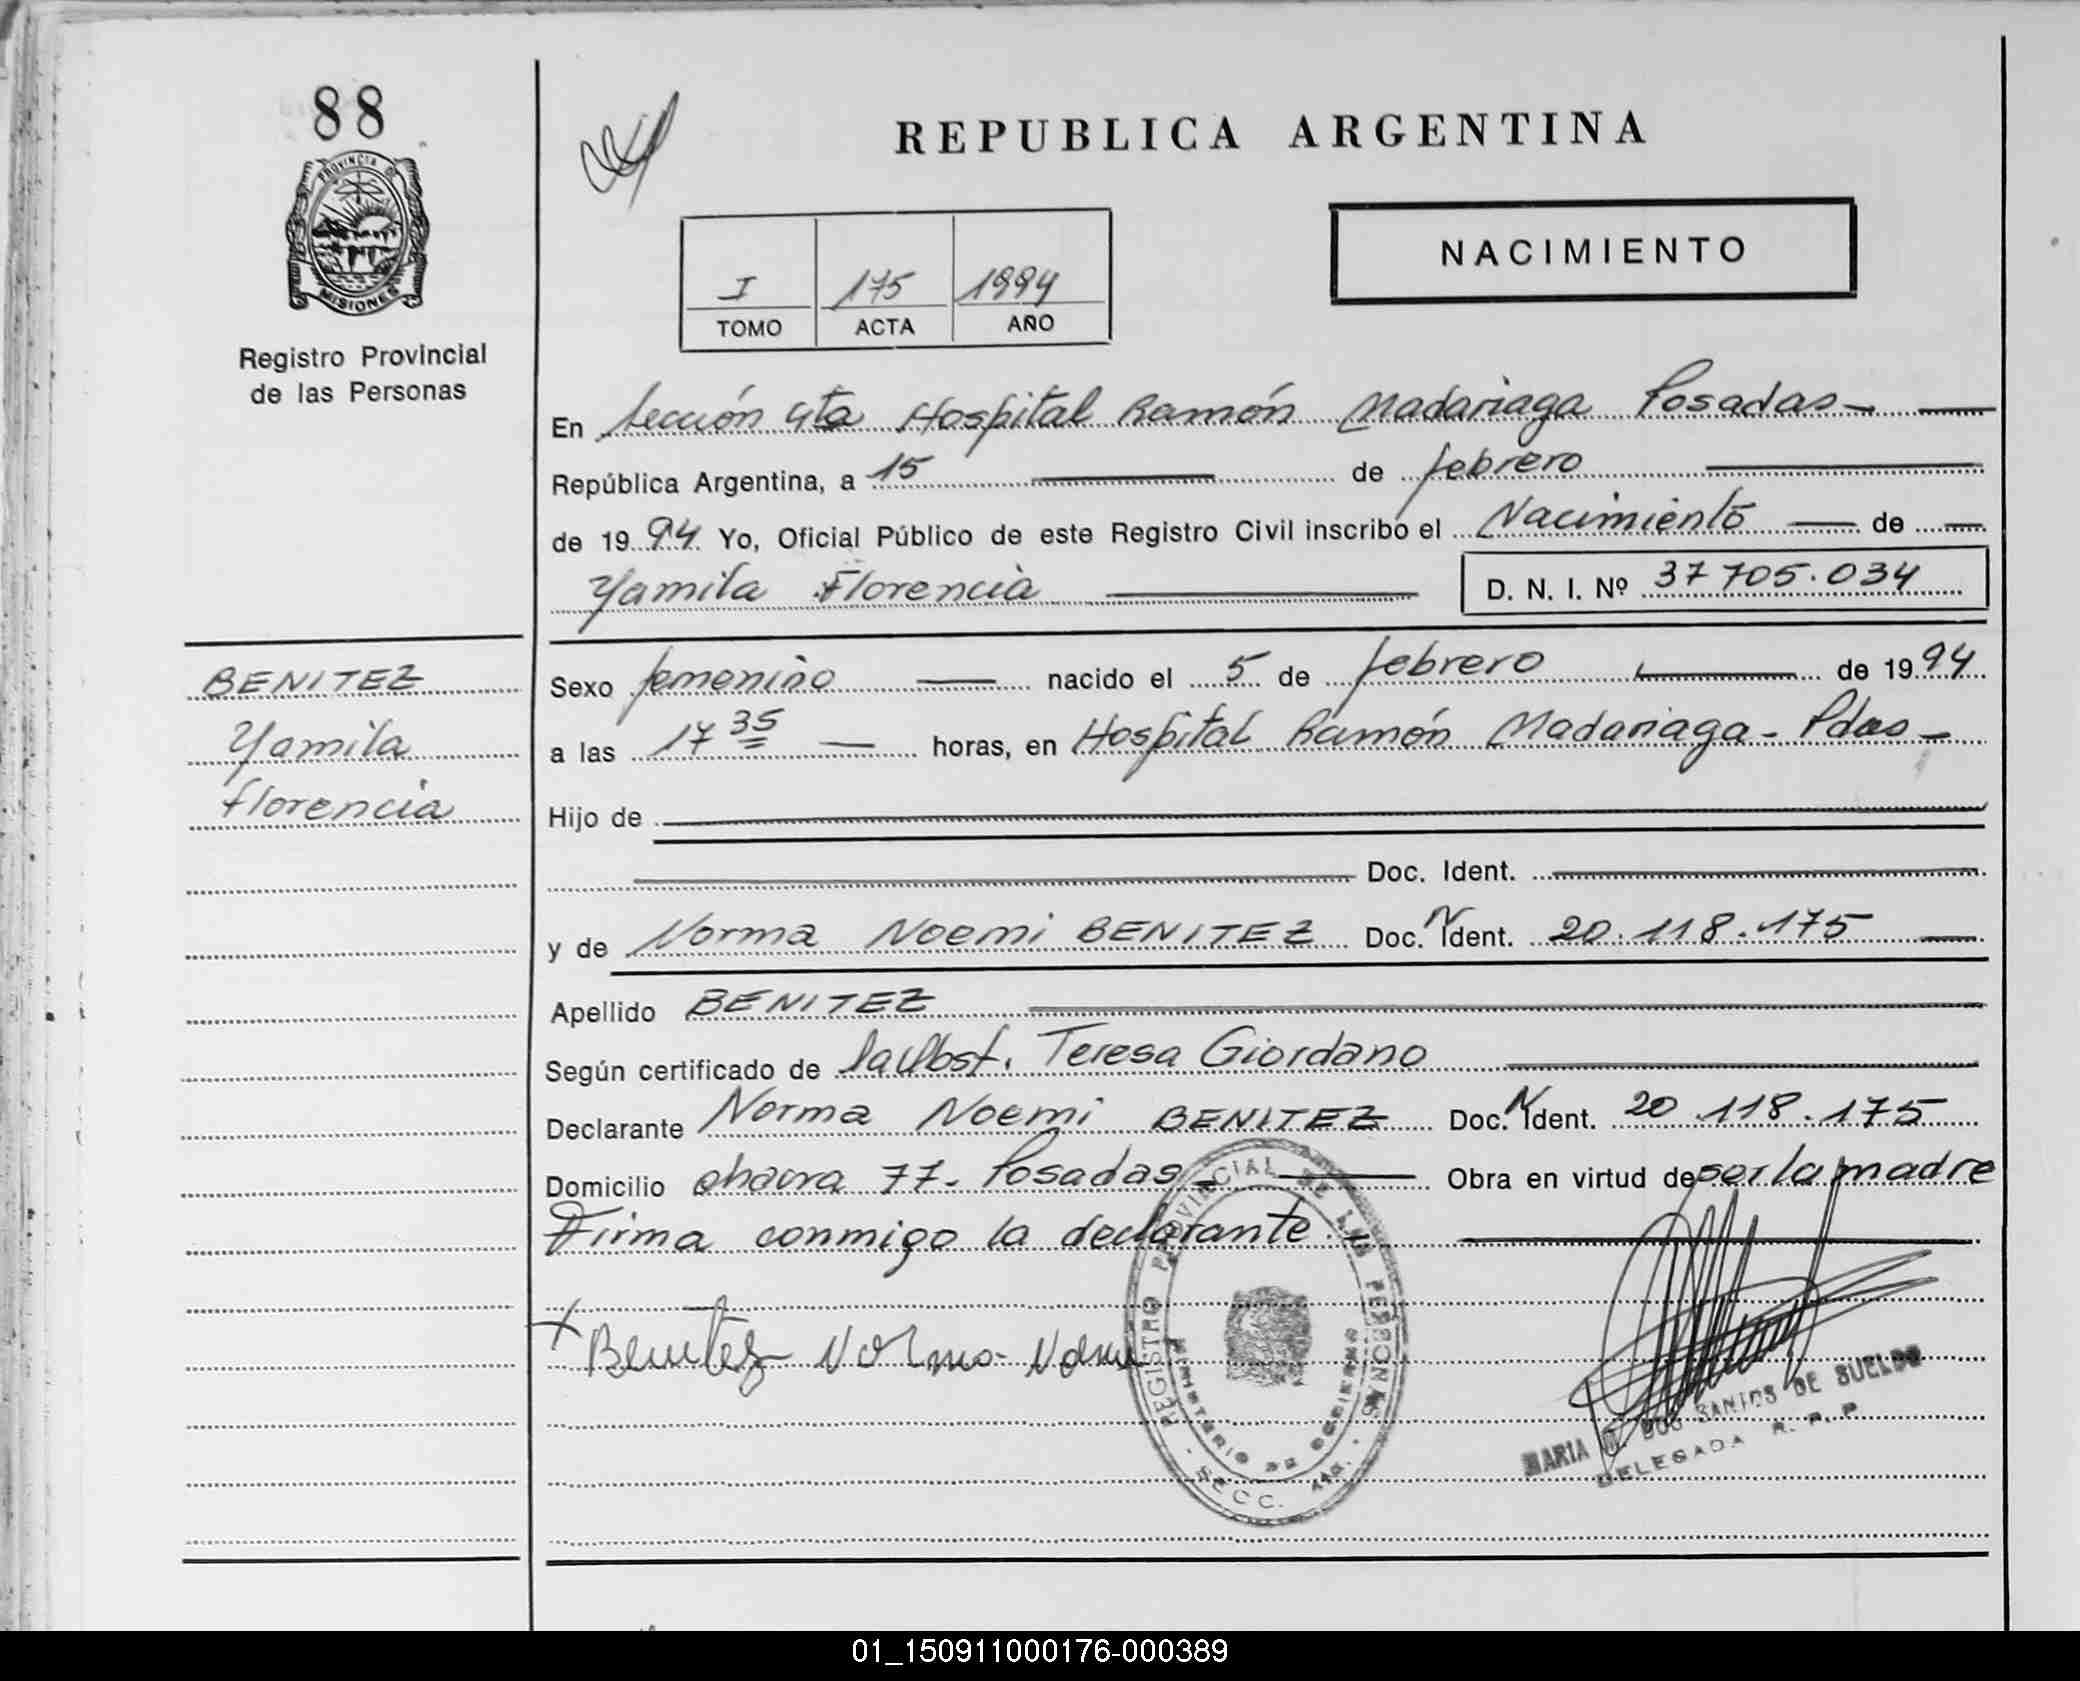 88
PROVINCIA DE
MISIONES
Registro Provincial
de las Personas
BENITEZ
Yamila
Florencia
REPUBLICA ARGENTINA
NACIMIENTO
I 175 1994
TOMO ACTA AÑO
En Sección 4ta Hospital Ramón Madariaga Posadas-
República Argentina, a 15 de febrero
de 1994 Yo, Oficial Público de este Registro Civil inscribo el Nacimiento de
Yamila Florencia D. N. I. Nº 37705.034
Sexo femenino nacido el 5 de febrero de 1994
a las 17 35 horas, en Hospital Ramón Madariaga - Pdas -
Hijo de
Doc. Ident.
y de Norma Noemi BENITEZ Doc. N Ident. 20.118.175
Apellido BENITEZ
Según certificado de la Obst. Teresa Giordano
Declarante Norma Noemi BENITEZ Doc. N Ident. 20.118.175
Domicilio chacra 77- Posadas- Obra en virtud de ser la madre
Firma conmigo la declarante.-
Benitez Norma Noemi
REGISTRO PROVINCIAL DE LAS PERSONAS
MINISTERIO DE GOBIERNO
SECC. 4ta.
MARIA DOS SANTOS DE SUELDO
DELEGADA R. P. P
01_150911000176-000389